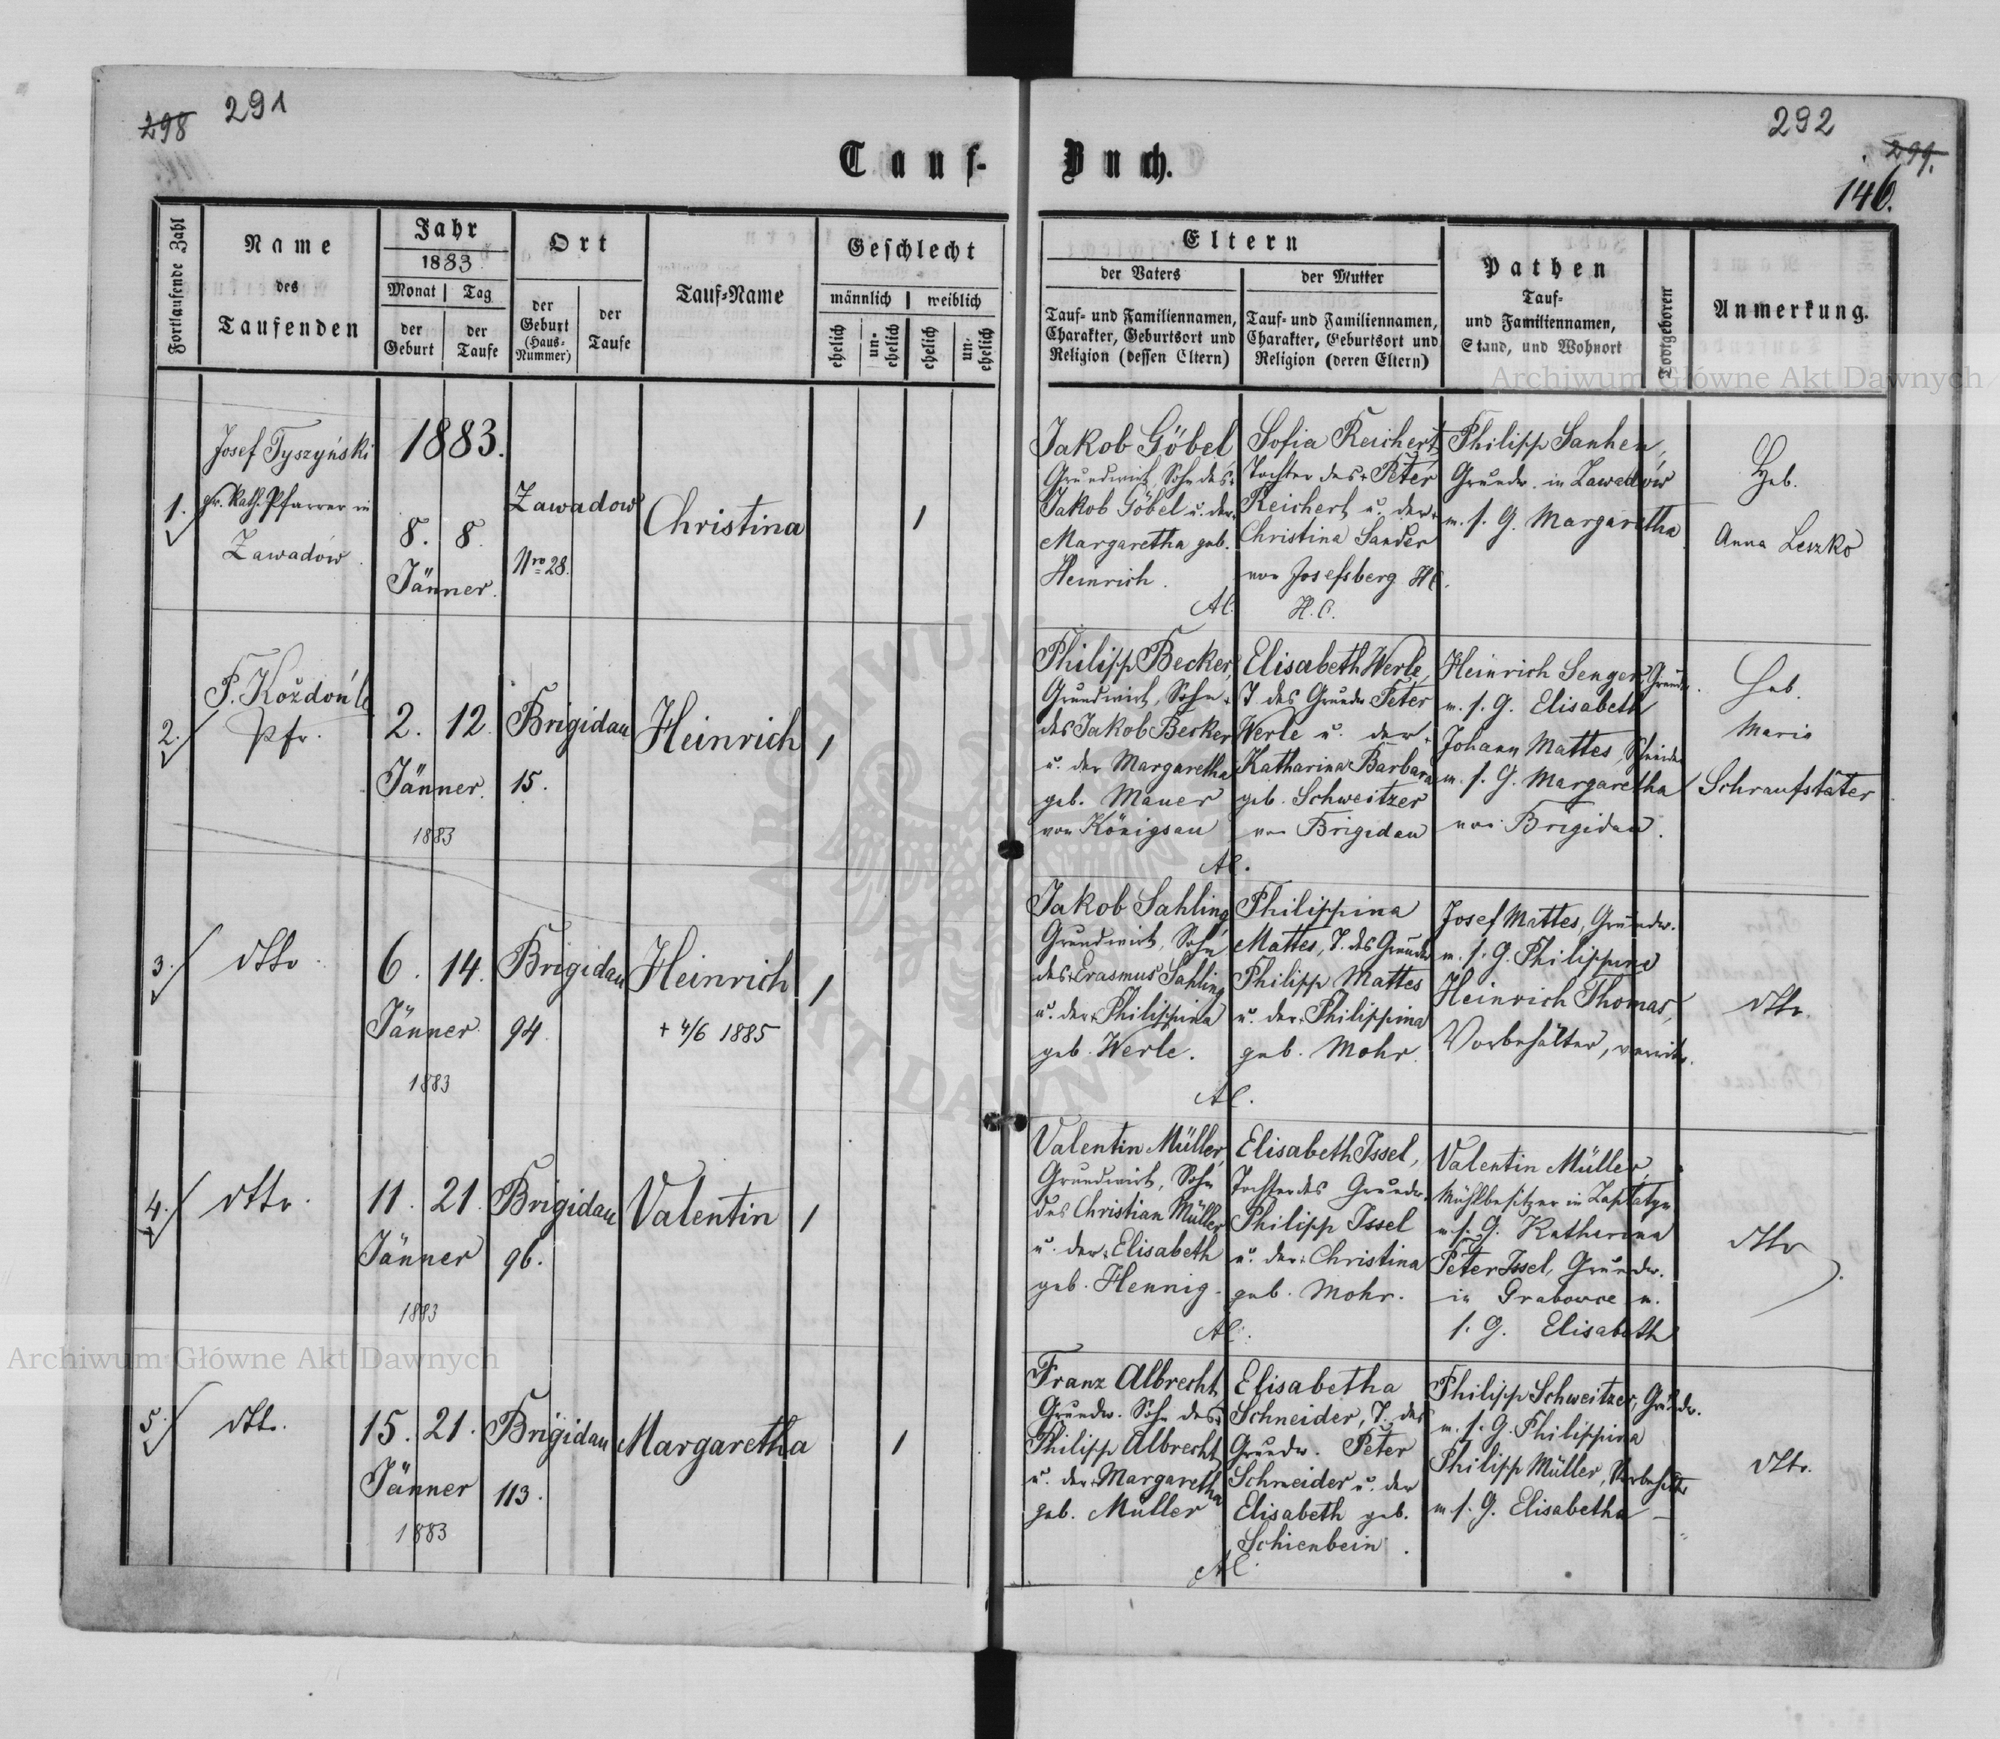 298 291
292
299.
146.
Tauf-Buch.
Fortlaufende Zahl
Name
des
Taufenden
Jahr
1883
Monat Tag
der Geburt
der Taufe
Ort
der Geburt (Haus-Nummer)
der Taufe
Tauf-Name
Geschlecht
männlich weiblich
ehelich
un-ehelich
ehelich
un-ehelich
Eltern
der Vaters
Tauf- und Familiennamen,
Charakter, Geburtsort und
Religion (dessen Eltern)
der Mutter
Tauf- und Familiennamen,
Charakter, Geburtsort und
Religion (deren Eltern)
Pathen
Tauf-
und Familiennamen,
Stand, und Wohnort
Todtgeboren
Anmerkung.
Archiwum Główne Akt Dawnych
1.
Josef Tyszyński
gr. Kath. Pfarrer in
Zawadów
1883.
8. 8.
Jänner.
Zawadow
Nro 28.
Christina
1
Jakob Göbel,
Grundwirt, Sohn des +
Jakob Göbel u. der +
Margaretha geb.
Heinrich.
AC.
Sofia Reichert,
Tochter des + Peter
Reichert u. der +
Christina Sander
von Josefsberg HC.
H.C.
Philipp Sanhen,
Grundw. in Zawadów
m. s. G. Margaretha
Heb.
Anna Leszko
2.
P. Kożdoń
Pfr.
2. 12.
Jänner.
1883
Brigidau
15.
Heinrich
1
Philipp Becker,
Grundwirt, Sohn +
des Jakob Becker
u. der Margaretha
geb. Mauer
von Königsau
AC.
Elisabeth Werle,
T. des Grundw Peter
Werle u. der +
Katharina Barbara
geb. Schweitzer
von Brigidau
Heinrich Senger, Grundw.
m. s. G. Elisabeth
Johann Mattes, Schneider
m. s. G. Margaretha
von Brigidau.
Heb.
Maria
Schraufstäter
3.
dtto.
6. 14.
Jänner.
1883
Brigidau
94.
Heinrich
+ 4/6 1885
1
Jakob Sahling,
Grundwirt, Sohn
des + Erasmus Sahling
u. der + Philippina
geb. Werle.
AC.
Philippina
Mattes, T. des Grundw
Philipp Mattes
u. der + Philippina
geb. Mohr.
Josef Mattes, Grundw.
m. s. G. Philippine
Heinrich Thomas,
Vorbehälter, verwitw.
dtto.
4.
dtto.
11. 21.
Jänner
1883
Brigidau
96.
Valentin
1
Valentin Müller,
Grundwirt, Sohn
des Christian Müller
u. der + Elisabeth
geb. Hennig.
AC.
Elisabeth Issel,
Tochter des Grundw.
Philipp Issel
u. der + Christina
geb. Mohr.
Valentin Müller,
Mühlbesitzer in
m. s. G. Katharina
Peter Issel, Grundw.
in Grabowce m.
s. G. Elisabeth
dtto
Archiwum Główne Akt Dawnych
5.
dtto.
15. 21.
Jänner
1883
Brigidau
113.
Margaretha
1
Franz Albrecht,
Grundw. Sohn des +
Philipp Albrecht
u. der + Margaretha
geb. Müller
AC.
Elisabetha
Schneider, T. des
Grundw. Peter
Schneider u. der
Elisabeth geb.
Schienbein.
Philipp Schweitzer, Grundw.
m. s. G. Philippina
Philipp Müller, Vorbehälter
m. s. G. Elisabetha
dtto.
ARCHIWUM GŁÓWNE AKT DAWNYCH